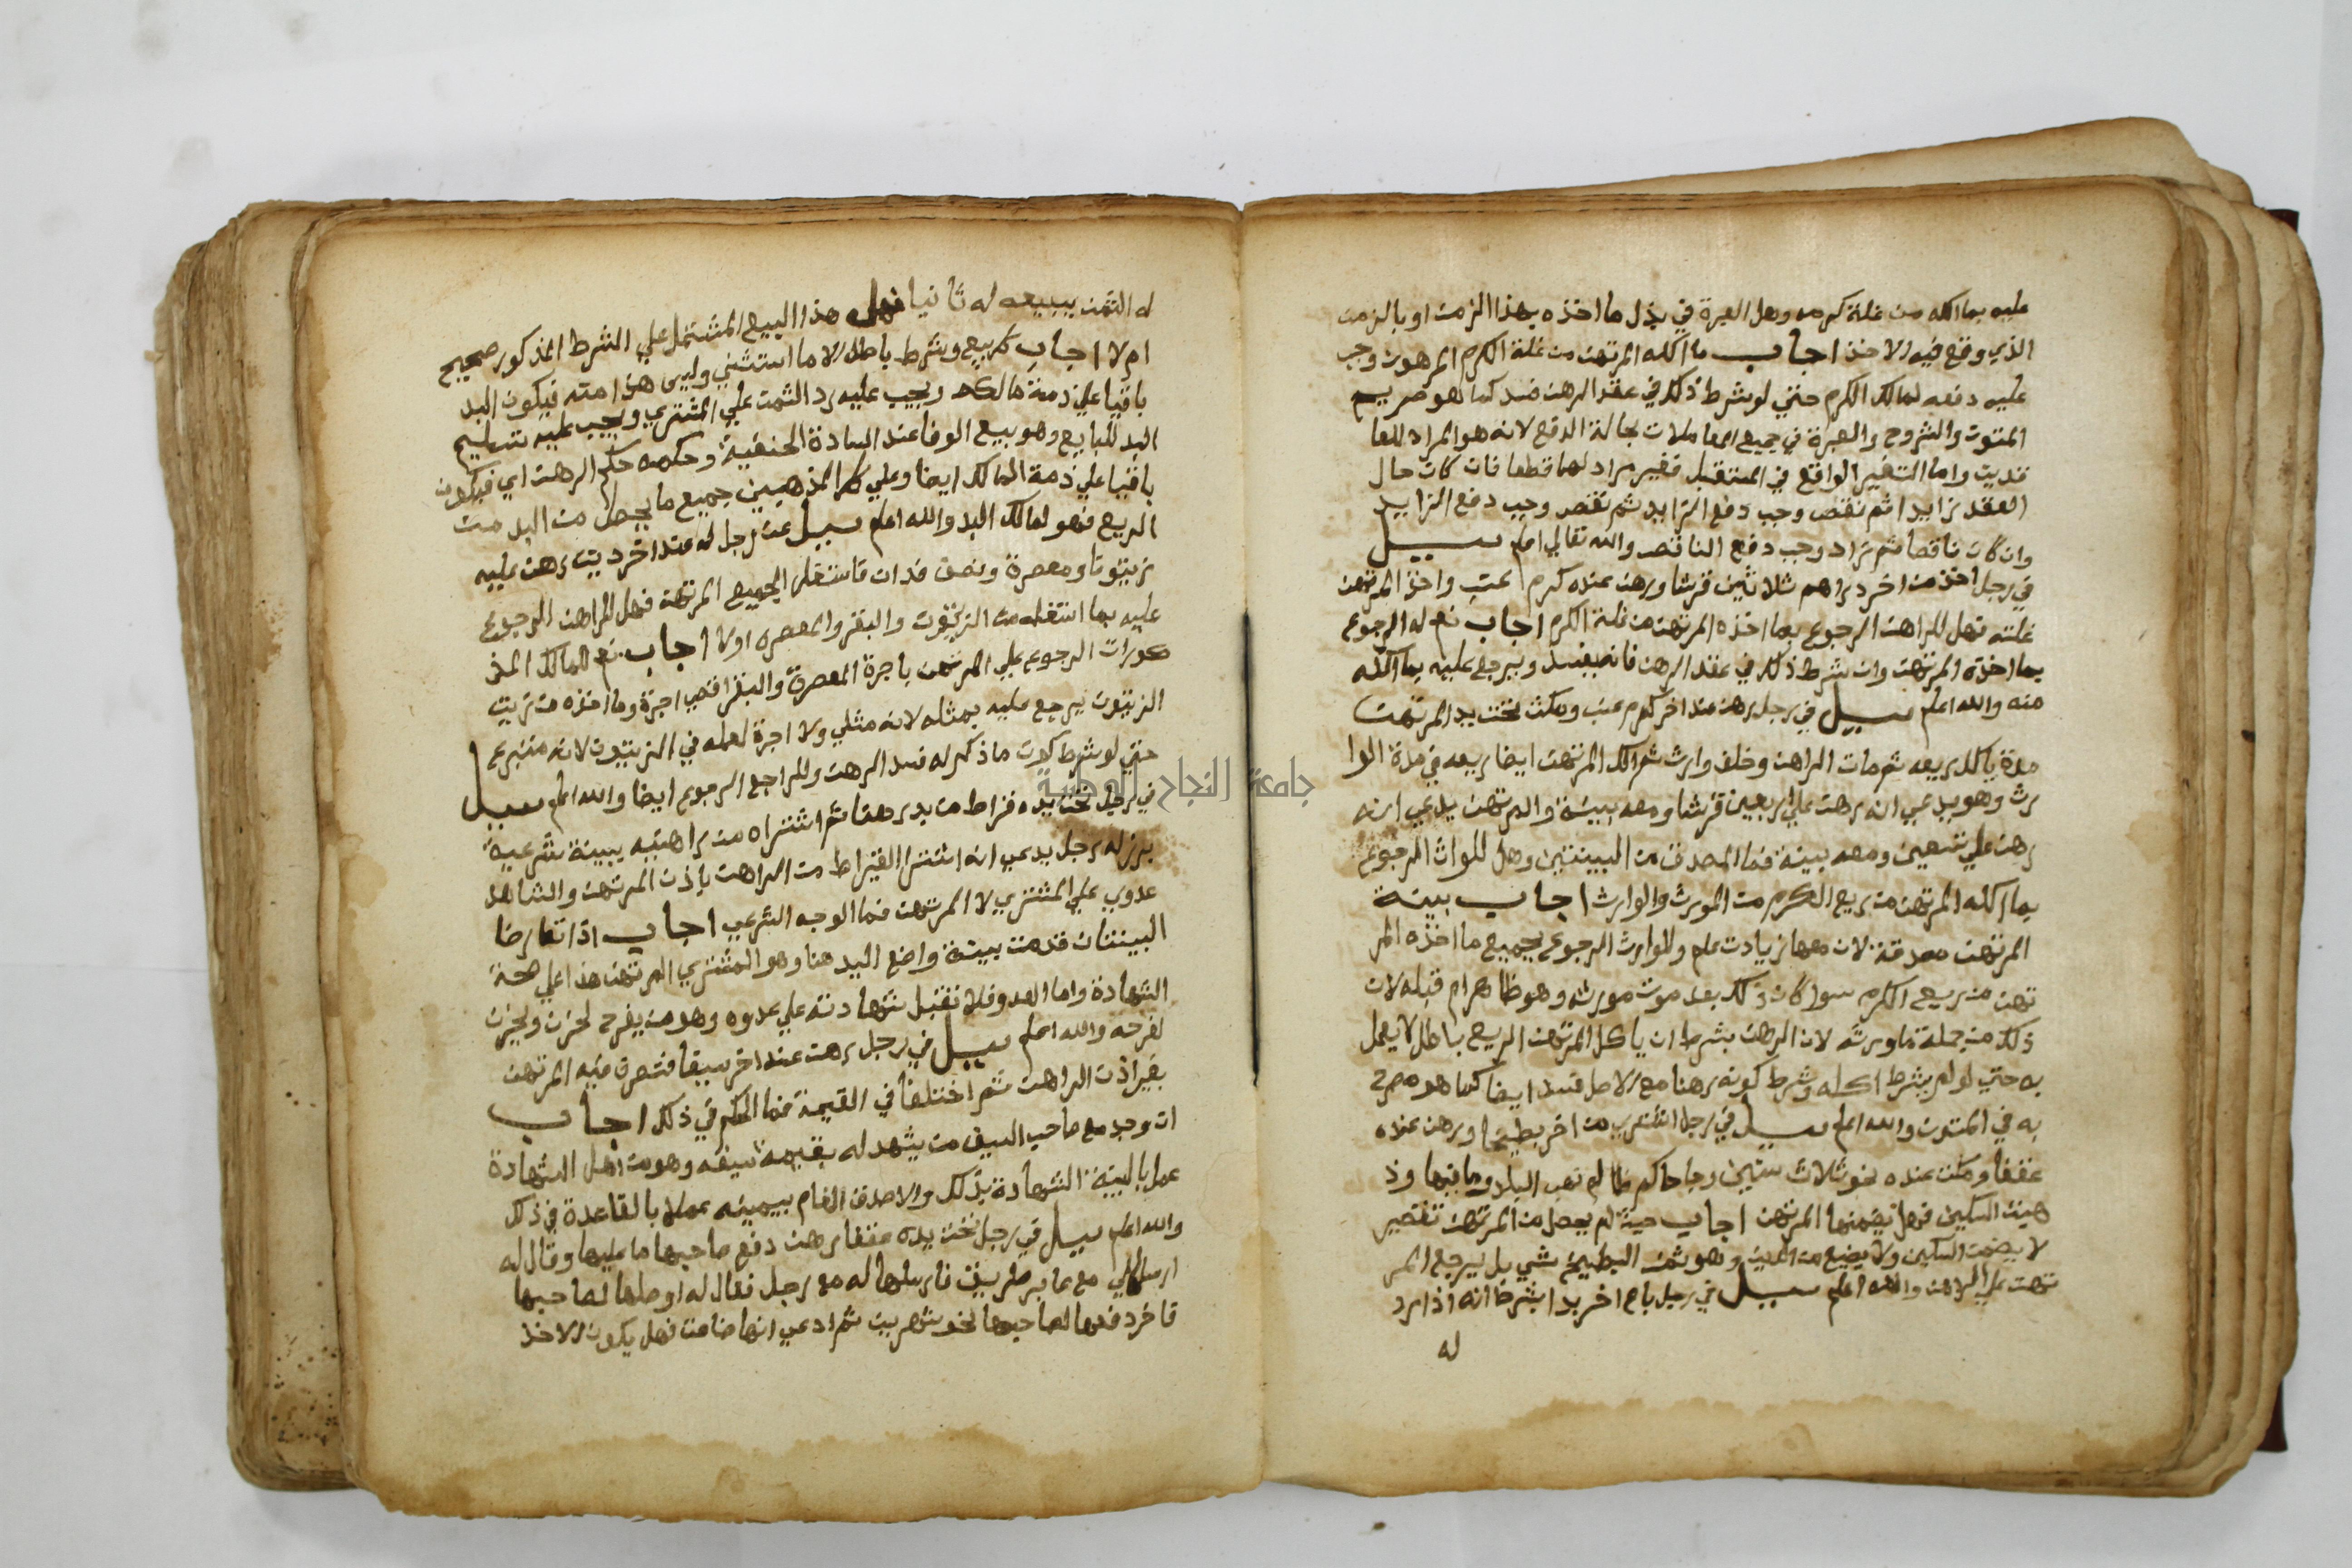 عليه بما اكله من غلة كرمه وهل العبرة في بذل ما اخذه بهذا الزمن او بالزمن
الذي وقع فيه الاخذ اجاب ما اكله المرتهن من غلة الكرم المرهون وجب
عليه دفعه لمالك الكرم حتي لو شرط ذلك في عقد الرهن فسد كما هو صريح
المتون والشروح والعبرة في جميع المعاملات بحالة الدفع لانه هو المراد للعا
قدين واما التغير الواقع في المستقبل فغير مراد لهما قطعا فان كان حال
العقد زايدا ثم نقص وجب دفع الزايد ثم نقص وجب دفع الزايد
وان كان ناقصا ثم زاد وجب دفع الناقص والله تعالي اعلم سيل
في رجل اخذ من اخر دراهم ثلاثين قرشا ورهن عنده كرم عنب واخذ المرتهن
غلته فهل للراهن الرجوع بما اخذه المرتهن من غلة الكرم اجاب نعم له الرجوع
بما اخذه المرتهن وان شرط ذلك في عقد الرهن فانه يفسد ويرجع عليه بما اكله
منه والله اعلم سيل في رجل رهن عند اخر كرم عنب ومكث تحت يد المرتهن
مدة ياكل ريعه ثم مات الراهن وخلف وارث ثم اكل المرتهن ايضا ريعه في مدة الوا
رث وهو يدعي انه رهن علي اربعين قرشا ومعه بينة والمرتهن يدعي انه
رهن علي تسعين ومعه بينة فما المصدق من البينتين وهل للوارث الرجوع
بما اكله المرتهن من ريع الكرم من المورث والوارث اجاب بينة
المرتهن مصدقة لان معها زيادت علم وللوارث الرجوع بجميع ما اخذه المر
تهن من ريع الكرم سوا كان ذلك بعد موت مورثه وهو ظاهر ام قبله لان
ذلك من جملة ما ورثه لان الرهن بشرط ان ياكل المرتهن الريع باطل لا يعمل
به حتي لو لم يشرط اكله وشرط كونه رهنا مع الاصل فسد ايضا كما هو مصرح
به في المتون والله اعلم سيل في رجل اشتري من اخر بطيخا ورهن عنده
عقفا ومكث عنده نحو ثلاث سنين وجا حاكم ظالم نهب البلد وما فيها وذ
هبت السكين فهل يضمنها المرتهن اجاب حيث لم يحصل من المرتهن تقصير
لا يضمن السكين ولا يضيع من الدين وهو ثمن البطيخ شي بل يرجع المر
تهن علي الراهن والله اعلم سيل في رجل باع اخر بدا بشرط انه اذا رد
له
له الثمن يبيعه له ثانيا فهل هذا البيع المشتمل علي الشرط المذكور صحيح
ام لا اجاب كل بيع وشرط باطل الا ما استثني وليس هذا منه فيكون البد
باقيا علي ذمة مالكه ويجب عليه رد الثمن علي المشتري ويجب عليه تسليم
البد للبايع وهو بيع الوفا عند السادة الحنفية وحكمه حكم الرهن اي فيكون
باقيا علي ذمة المالك ايضا وعلي كل المذهبين جميع ما يحصل من البد من
الريع فهو لمالك البد والله اعلم سيل عن رجل له عند اخر دين رهن عليه
زيتونا ومعصرة ونصف فدان فاستغل الجميع المرتهن فهل للراهن الرجوع
عليه بما استغله من الزيتون والبقر والمعصره اولا اجاب نعم للمالك المذ
كورات الرجوع علي المرتهن باجرة المعصرة والبقر اقصي اجرة وما اخذه من زيت
الزيتون يرجع عليه بمثله لانه مثلي ولا اجرة لعمله في الزيتون لانه متبرع
حتي لو شرط كون ما ذكر له فسد الرهن وللراجع الرجوع ايضا والله اعلم سيل
في رجل تحت يده قراط من بد رهنا ثم اشتراه من راهنيه ببينة شرعية
برز له رجل يدعي انه اشتري القيراط من الراهن باذن المرتهن والشاهد
عدوي علي المشتري لا المرتهن فما الوجه الشرعي اجاب اذا تعارضا
البينتان قدمت بينة واضع اليد هنا وهو المشتري المرتهن هذا علي صحة
الشهادة واما العدو فلا تقبل شهادته علي عدوه وهو من يفرح لحزن ويحزن
لفرحه والله اعلم سيل في رجل رهن عند اخر سيفا فتصرف فيه المرتهن
بغير اذن الراهن ثم اختلفا في القيمة فما الحكم في ذلك اجاب
ان وجد مع صاحب السيف من يشهد له بقيمة سيفه وهو من اهل الشهادة
عمل بالبينة الشهادة بذلك والا صدق الغام بيمينه عملا بالقاعدة في ذلك
والله اعلم سيل في رجل تحت يده عقفا رهن دفع صاحبها ما عليها وقال له
ارسلها لي مع عابر طريق فارسلها له مع رجل فقال له اوصلها لصاحبها
فاخر دفعها لصاحبها نحو شهرين ثم ادعي انها ضاعت فهل يكون الاخذ
جامعة النجاح الوطنية